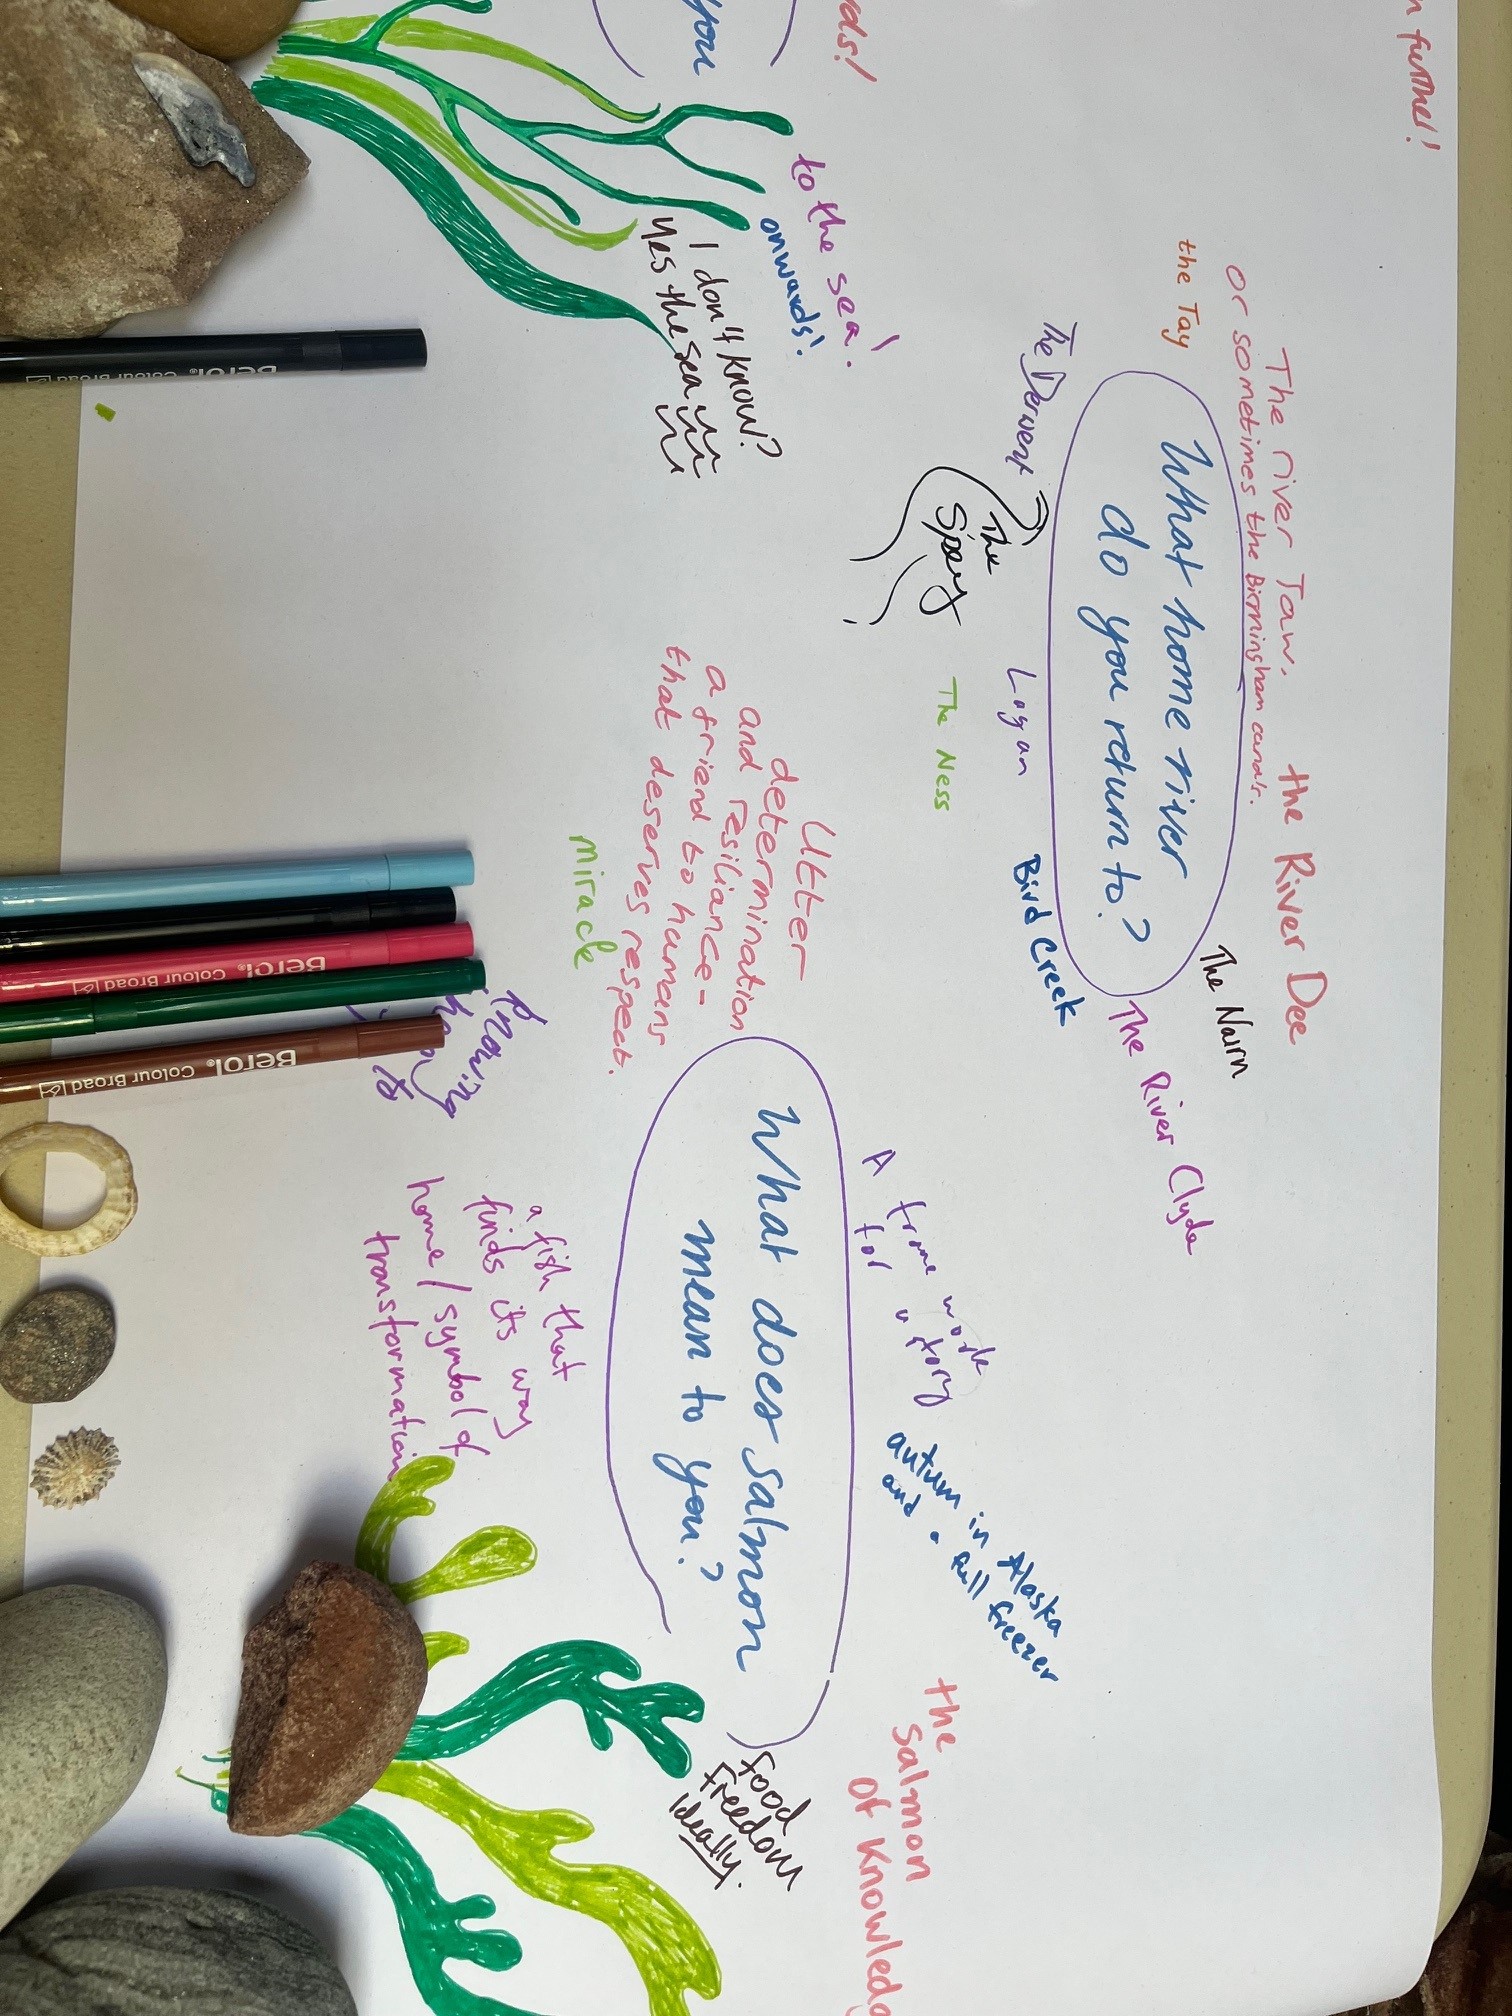 n further!
ds!
you
to the sea!
onwards!
I don't know?
Yes the sea
The river Taw.
or sometimes the Birmingham canals.
the River Dee
the Tay
What home river
do you return to?
The Derwent
The
Spey
Logan
The Ness
Bird Creek
The Nairn
The River Clyde
Utter
determination
and resiliance-
a friend to humans
that deserves respect.
miracle
What does salmon
mean to you?
A frame work
for a story
autum in Alaska
and a full freezer
the
Salmon
of Knowledg
food
freedom
ideally.
a fish that
finds its way
home / symbol of
transformation
knowing
to
Berol Colour Broad
Berol Colour Broad
Berol Colour Broad